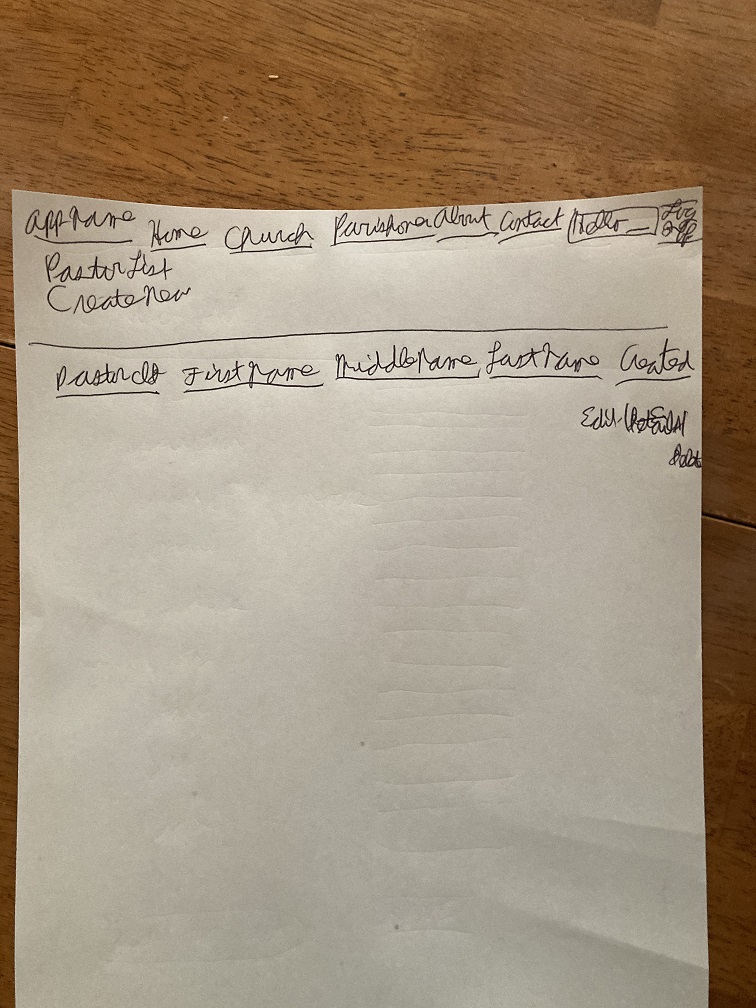 AppName Home Church Parishoner About Contact Hello __ Log Off
Pastor List
Create New
PastorId FirstName MiddleName LastName Created
Edit